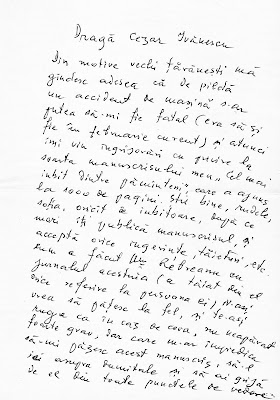 Dragă Cezar Ivănescu
Din motive vechi țărănești mă
gîndesc adesea că de pildă
un accident de mașină s-ar
putea să-mi fie fatal (era să și
fie în februarie curent) și atunci
îmi vin îngrijorări cu privire la
soarta manuscrisului meu „Cel mai
iubit dintre pămînteni", care a ajuns
la 1000 de pagini. Știu bine, rudele,
soția, oricît de iubitoare, după ce
mori îți publică manuscrisul și
acceptă orice sugestie, tăieturi, etc.
cum a făcut Rebreanu cu
jurnalul acestuia (a tăiat din el
orice referire la persoana ei). N-aș
vrea să pățesc la fel, și te-aș
ruga ca în caz de ceva, nu neapărat
foarte grav, dar care m-ar împiedica
să-mi păzesc acest manuscris, să-l
iei asupra dumitale și să ai grijă
de el din toate punctele de vedere